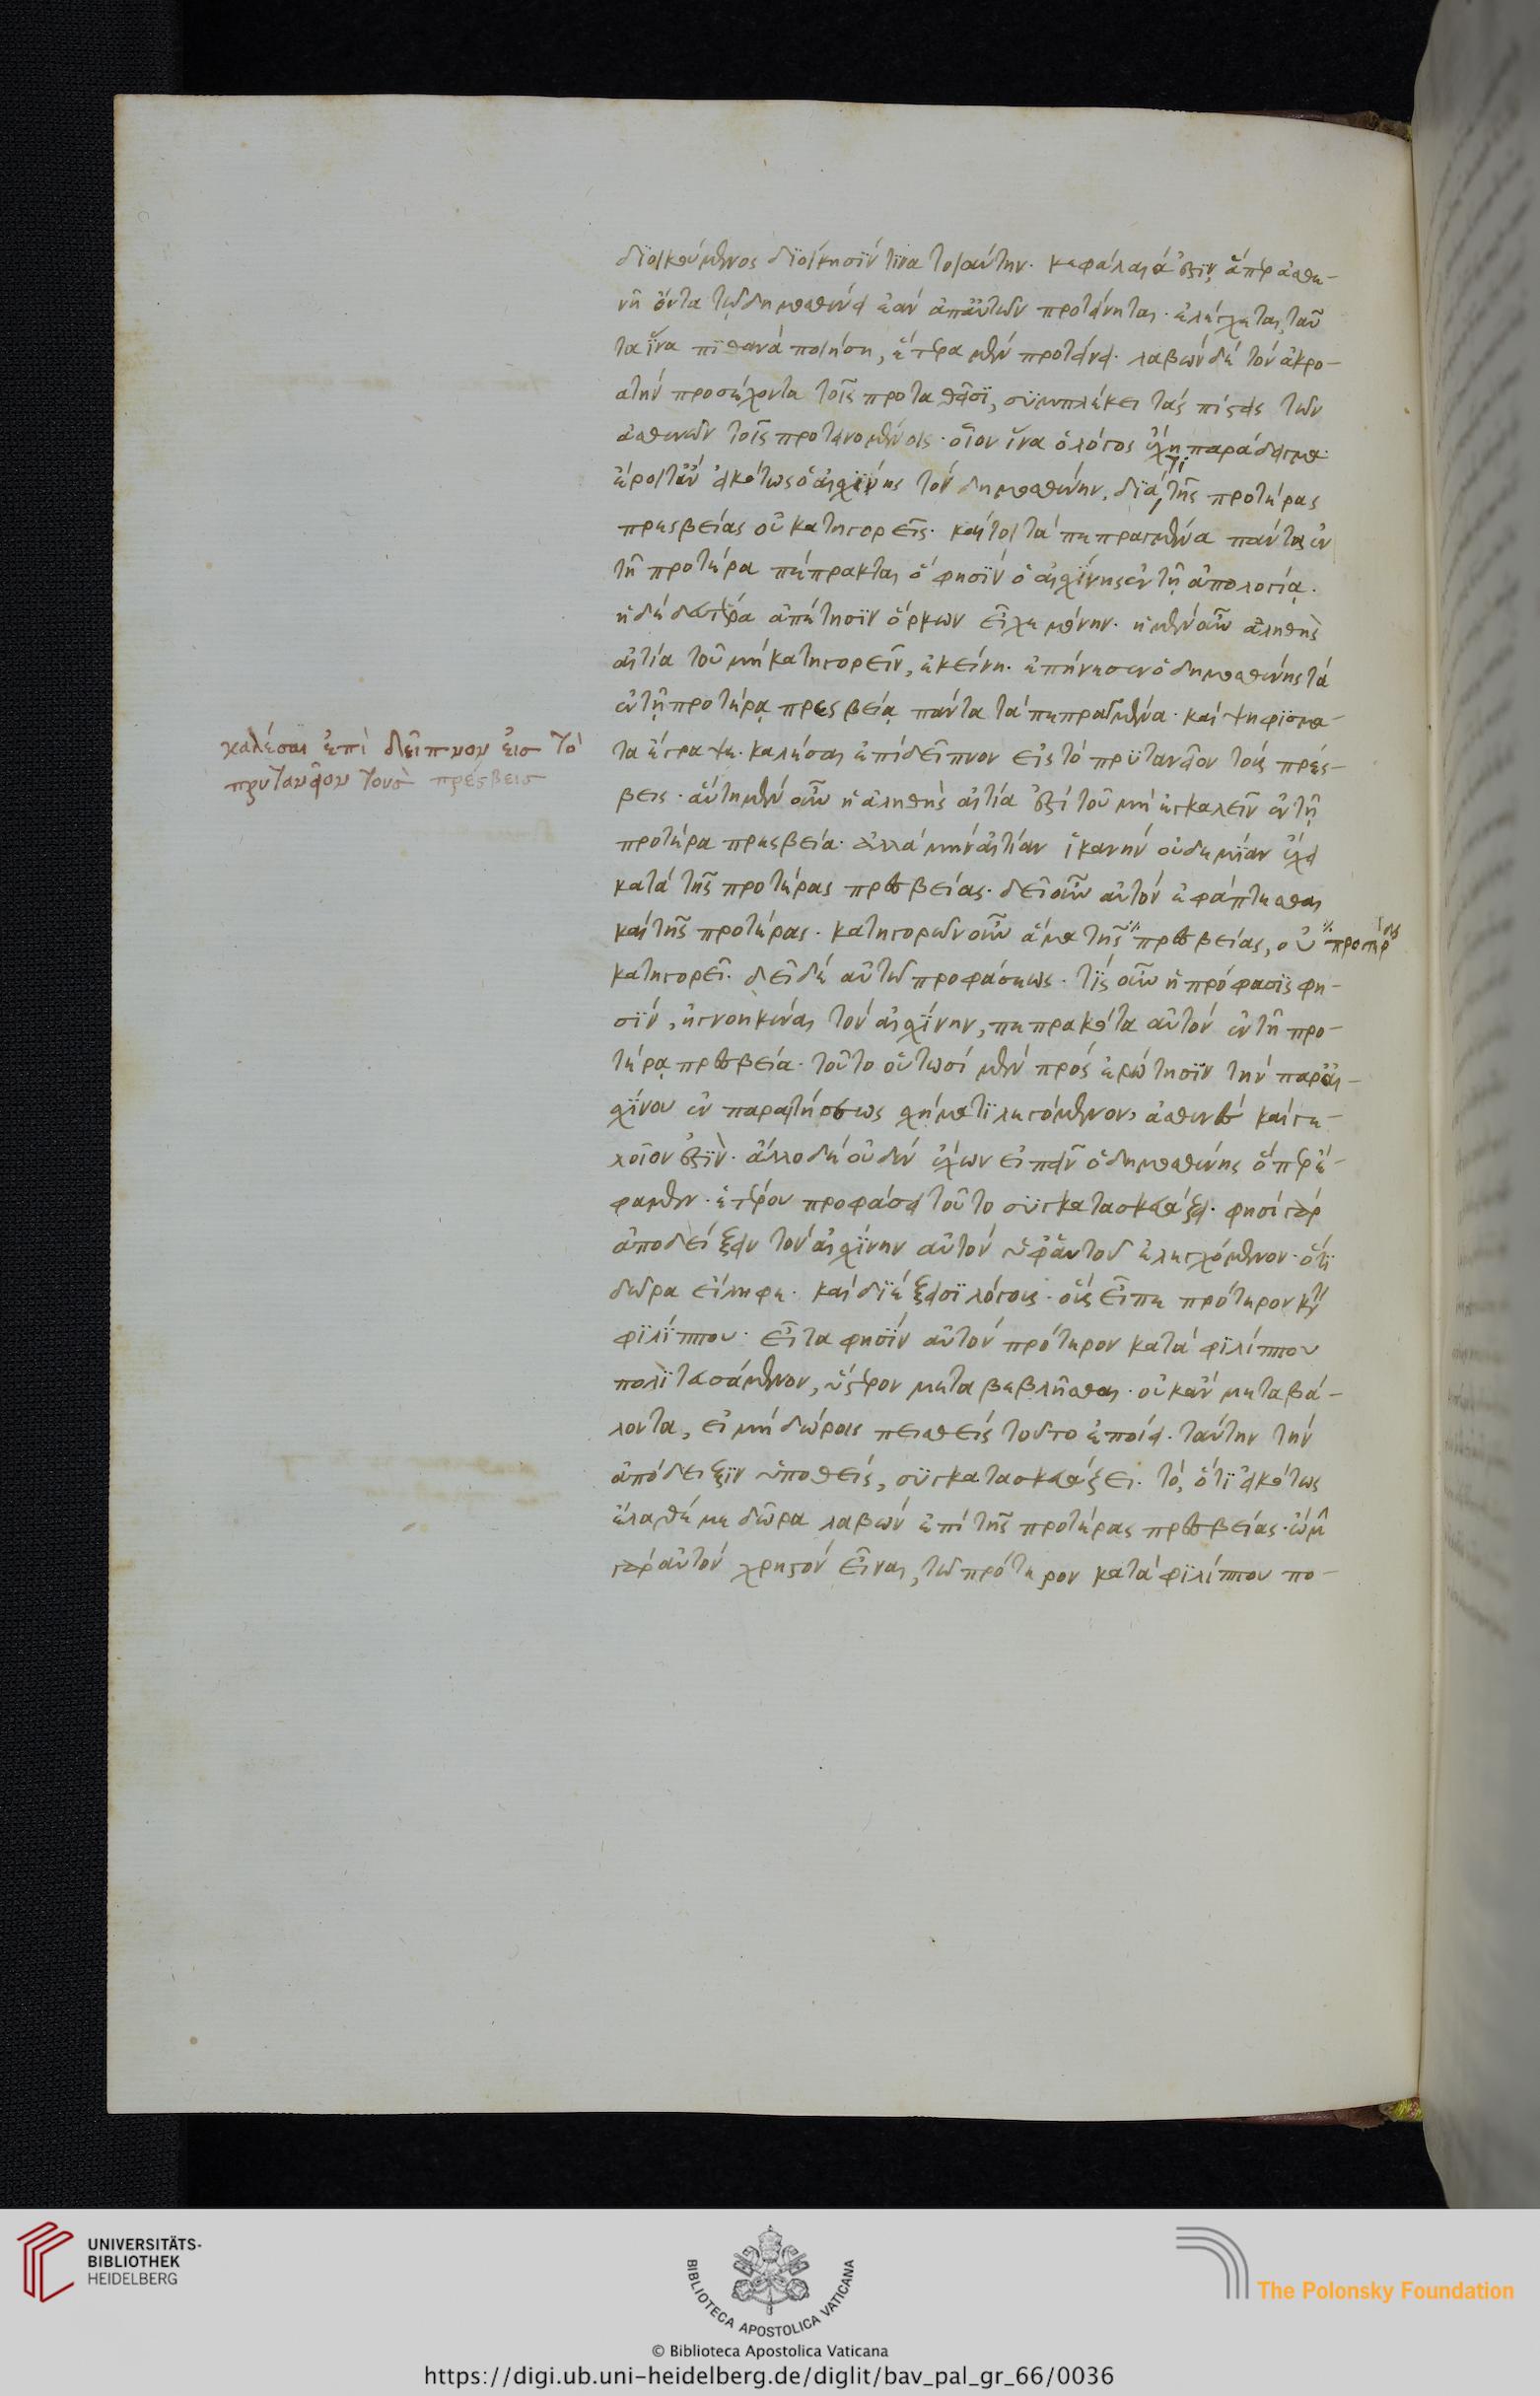 διοικούμενος διοίκησίν τινα τοιαύτην. κεφάλαιά ἐστιν, ἅπερ ἀσθε-
νῆ ὄντα τῷ δημοσθένει ἐὰν ἀπ' αὐτῶν προτείνηται. ἐλέγχεται, ταῦ
τα ἵνα πιθανὰ ποιήση, ἕτερα μὲν προτείνει. λαβὼν δὲ τὸν ἀκρο-
ατὴν προσέχοντα τοῖς προταθεῖσι, συμπλέκει τὰς πίστεις τῶν
ἀσθενῶν τοῖς προτεινομένοις. οἷον ἵνα ὁ λόγος ἔχη παράδειγμα
ἔροιτ' ἂν εἰκότως ὁ αἰσχίνης τὸν δημοσθένην. διὰ τί τῆς προτέρας
πρεσβείας οὐ κατηγορεῖς. καίτοι τὰ πεπραγμένα πάντα ἐν
τῆ προτέρα πέπρακται ὅ φησὶν ὁ αἰσχίνης ἐν τῇ ἀπολογίᾳ.
ἡ δὲ δευτέρα ἀπαίτησιν ὅρκων εἶχε μόνην. ἡ μὲν οὖν ἀληθὴς
αἰτία τοῦ μὴ κατηγορεῖν, ἐκείνη. ἐπήνεσεν ὁ δημοσθένης τὰ
ἐν τῇ προτέρᾳ πρεσβείᾳ πάντα τὰ πεπραγμένα. καὶ ψηφίσμα-
τα ἔγραψε. καλέσαι ἐπὶ δεῖπνον εἰς τὸ πρυτανεῖον τοὺς πρέσ-
βεις. αὕτη μὲν οὖν ἡ ἀληθὴς αἰτία ἐστὶ τοῦ μὴ ἐγκαλεῖν ἐν τῇ
προτέρα πρεσβεία. ἀλλὰ μὴν αἰτίαν ἱκανὴν οὐδεμίαν ἔχει
κατὰ τῆς προτέρας πρεσβείας. δεῖ οὖν αὐτὸν ἐφάπτεσθαι
καὶ τῆς προτέρας. κατηγορῶν οὖν ἅμα τῆς πρεσβείας, οὐ προτέρας
κατηγορεῖ. δεῖ δὲ αὐτῶ προφάσεως. τίς οὖν ἡ πρόφασις φη-
σὶν, ἠγνοηκέναι τὸν αἰσχίνην, πεπρακότα αὐτὸν ἐν τῆ προ-
τέρᾳ πρεσβεία. τοῦτο οὑτωσὶ μὲν πρὸς ἐρώτησιν τὴν παρ' αἰ-
σχίνου ἐν παραστήσεως σχήματι λεγόμενον, ἀσθενὲς καὶ γε-
λοῖον ἐστὶν. ἄλλο δὲ οὐδὲν ἔχων εἰπεῖν ὁ δημοσθένης ὅπερ ἔ-
φαμεν. ἑτέρου προφάσει τοῦτο συγκατασκευάζει. φησὶ γὰρ
ἀποδείξειν τὸν αἰσχίνην αὐτὸν ὑφ' αὑτοῦ ἐλεγχόμενον. ὅτι
δῶρα εἴληφε. καὶ διέξεισι λόγους. οὓς εἶπε πρότερον κατὰ
φιλίππου. εἶτα φησὶν αὐτὸν πρότερον κατὰ φιλίππου
πολιτευσάμενον, ὕστερον μεταβεβλῆσθαι. οὐκ ἂν μεταβα-
λόντα, εἰ μὴ δώροις πεισθεὶς τοῦτο ἐποίει. ταύτην τὴν
ἀπόδειξιν ὑποθεὶς, συγκατασκευάζει. τό, ὅτι εἰκότως
ἔλαθέ με δῶρα λαβὼν ἐπὶ τῆς προτέρας πρεσβείας. ᾤμην
γὰρ αὐτὸν χρηστὸν εἶναι, τῶ πρότερον κατὰ φιλίππου πο-
καλέσαι ἐπὶ δεῖπνον εἰσ τὸ
πρυτανεῖον τοὺσ πρέσβεισ
UNIVERSITÄTS-
BIBLIOTHEK
HEIDELBERG
BIBLIOTECA APOSTOLICA VATICANA
The Polonsky Foundation
© Biblioteca Apostolica Vaticana
https://digi.ub.uni-heidelberg.de/diglit/bav_pal_gr_66/0036